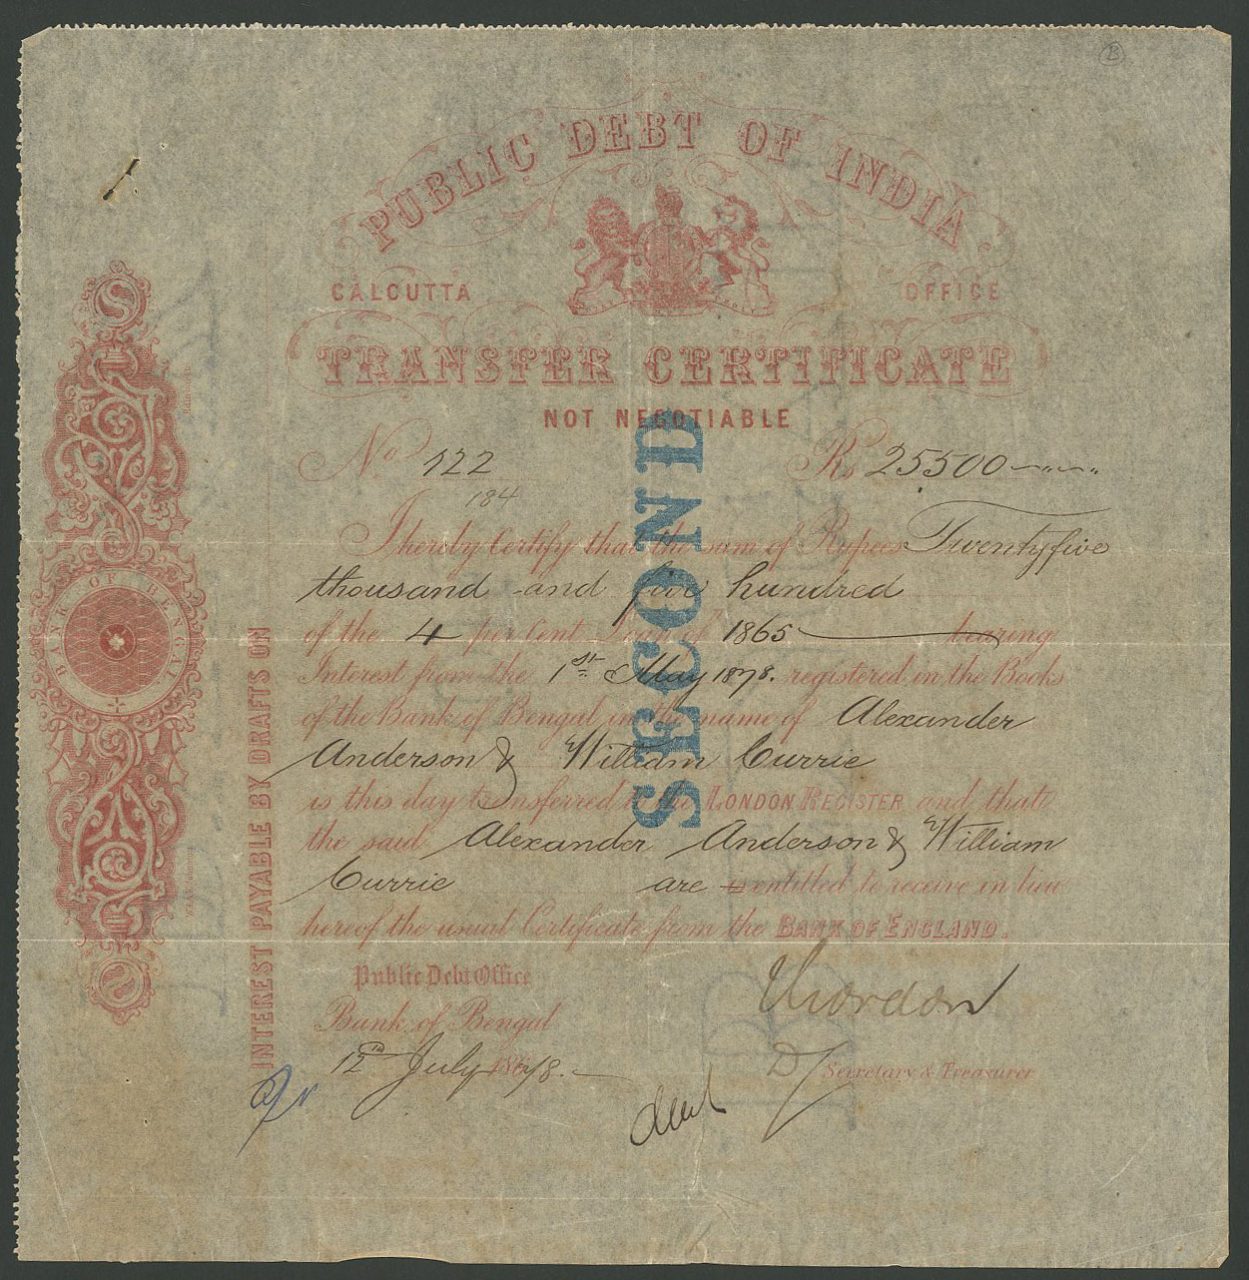 PUBLIC DEBT OF INDIA
CALCUTTA OFFICE
TRANSFER CERTIFICATE
NOT NEGOTIABLE
No 122 Rs 25500
184
SECOND
I hereby Certify that the sum of Rupees Twentyfive
thousand and five hundred
of the 4 per Cent Loan of 1865 bearing
Interest from the 1st May 1878. registered in the Books
of the Bank of Bengal in the name of Alexander
Anderson & William Currie
is this day transferred to the LONDON REGISTER and that
the said Alexander Anderson & William
Currie are is entitled to receive in lieu
hereof the usual Certificate from the BANK OF ENGLAND.
Public Debt Office
Bank of Bengal
12th July 1878.
Dy Secretary & Treasurer
INTEREST PAYABLE BY DRAFTS ON
BANK OF BENGAL